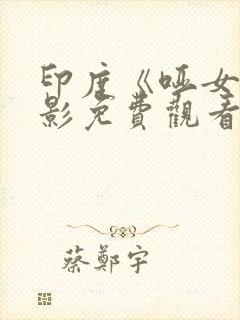 印度《哑女
影免費觀看
蔡鄭宇